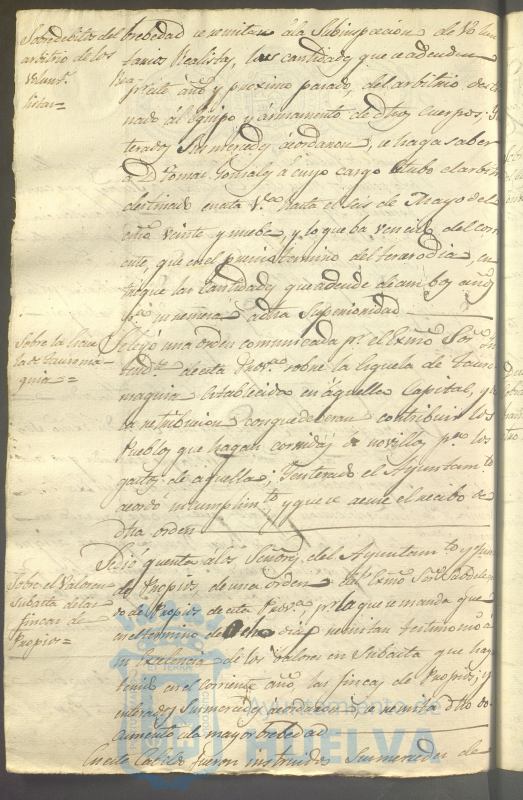 Sobre debitos del
arbitrio de los
Volunt.s Rea-
listas=
brebedad se remitan á la Subinspeccion de Volun
tarios Realistas, las cantidades que se adeuden
presente año y proximo pasado, del arbitrio desti
nado al equipo y armamento de dhos Cuerpos. En
terados Sus mercedes acordaron, se haga saber
á D. Tomas Gonzalez á cuyo cargo estubo el arbitrio
destinado en esta V.a hasta el seis de Mayo del
año veinte y nuebe, y lo que ba vencido del corri
ente, que en el termino del tercero dia, en
tregue las Cantidades que adeude de ambos años
para remesar á dha Superioridad
Sobre la Escue
la de Tauroma
quia=
Se leyó una orden comunicada p.r el Exmo Sor. In
tend.te de esta Prov.a sobre la Escuela de Tauro
maquia establecida en aquella Capital, y
la retribucion con que deberan contribuir los
Pueblos que hagan corridas de novillos para los
gastos de aquella; Y enterado el Ayuntam.to
acordó su cumplim.to y que se avise el recibo de
dha orden
Sobre el valor en
Subasta de las
fincas de
Propios=
Se dió quenta á los Señores del Ayuntam.to y Junta
de Propios, de una orden del Exmo Sor. Subdelega
do de Propios de esta Prov.a por la que se manda que
en el termino de ocho dias remitan testimonio á
su Excelencia de los valores en Subasta que han
tenido en el corriente año las fincas de Propios; y
enterados Sus mercedes acordaron, se remita dho do
cumento á la mayor brebedad
En este Cabildo fueron instruidos Sus mercedes de
Ayuntamiento de
HUELVA